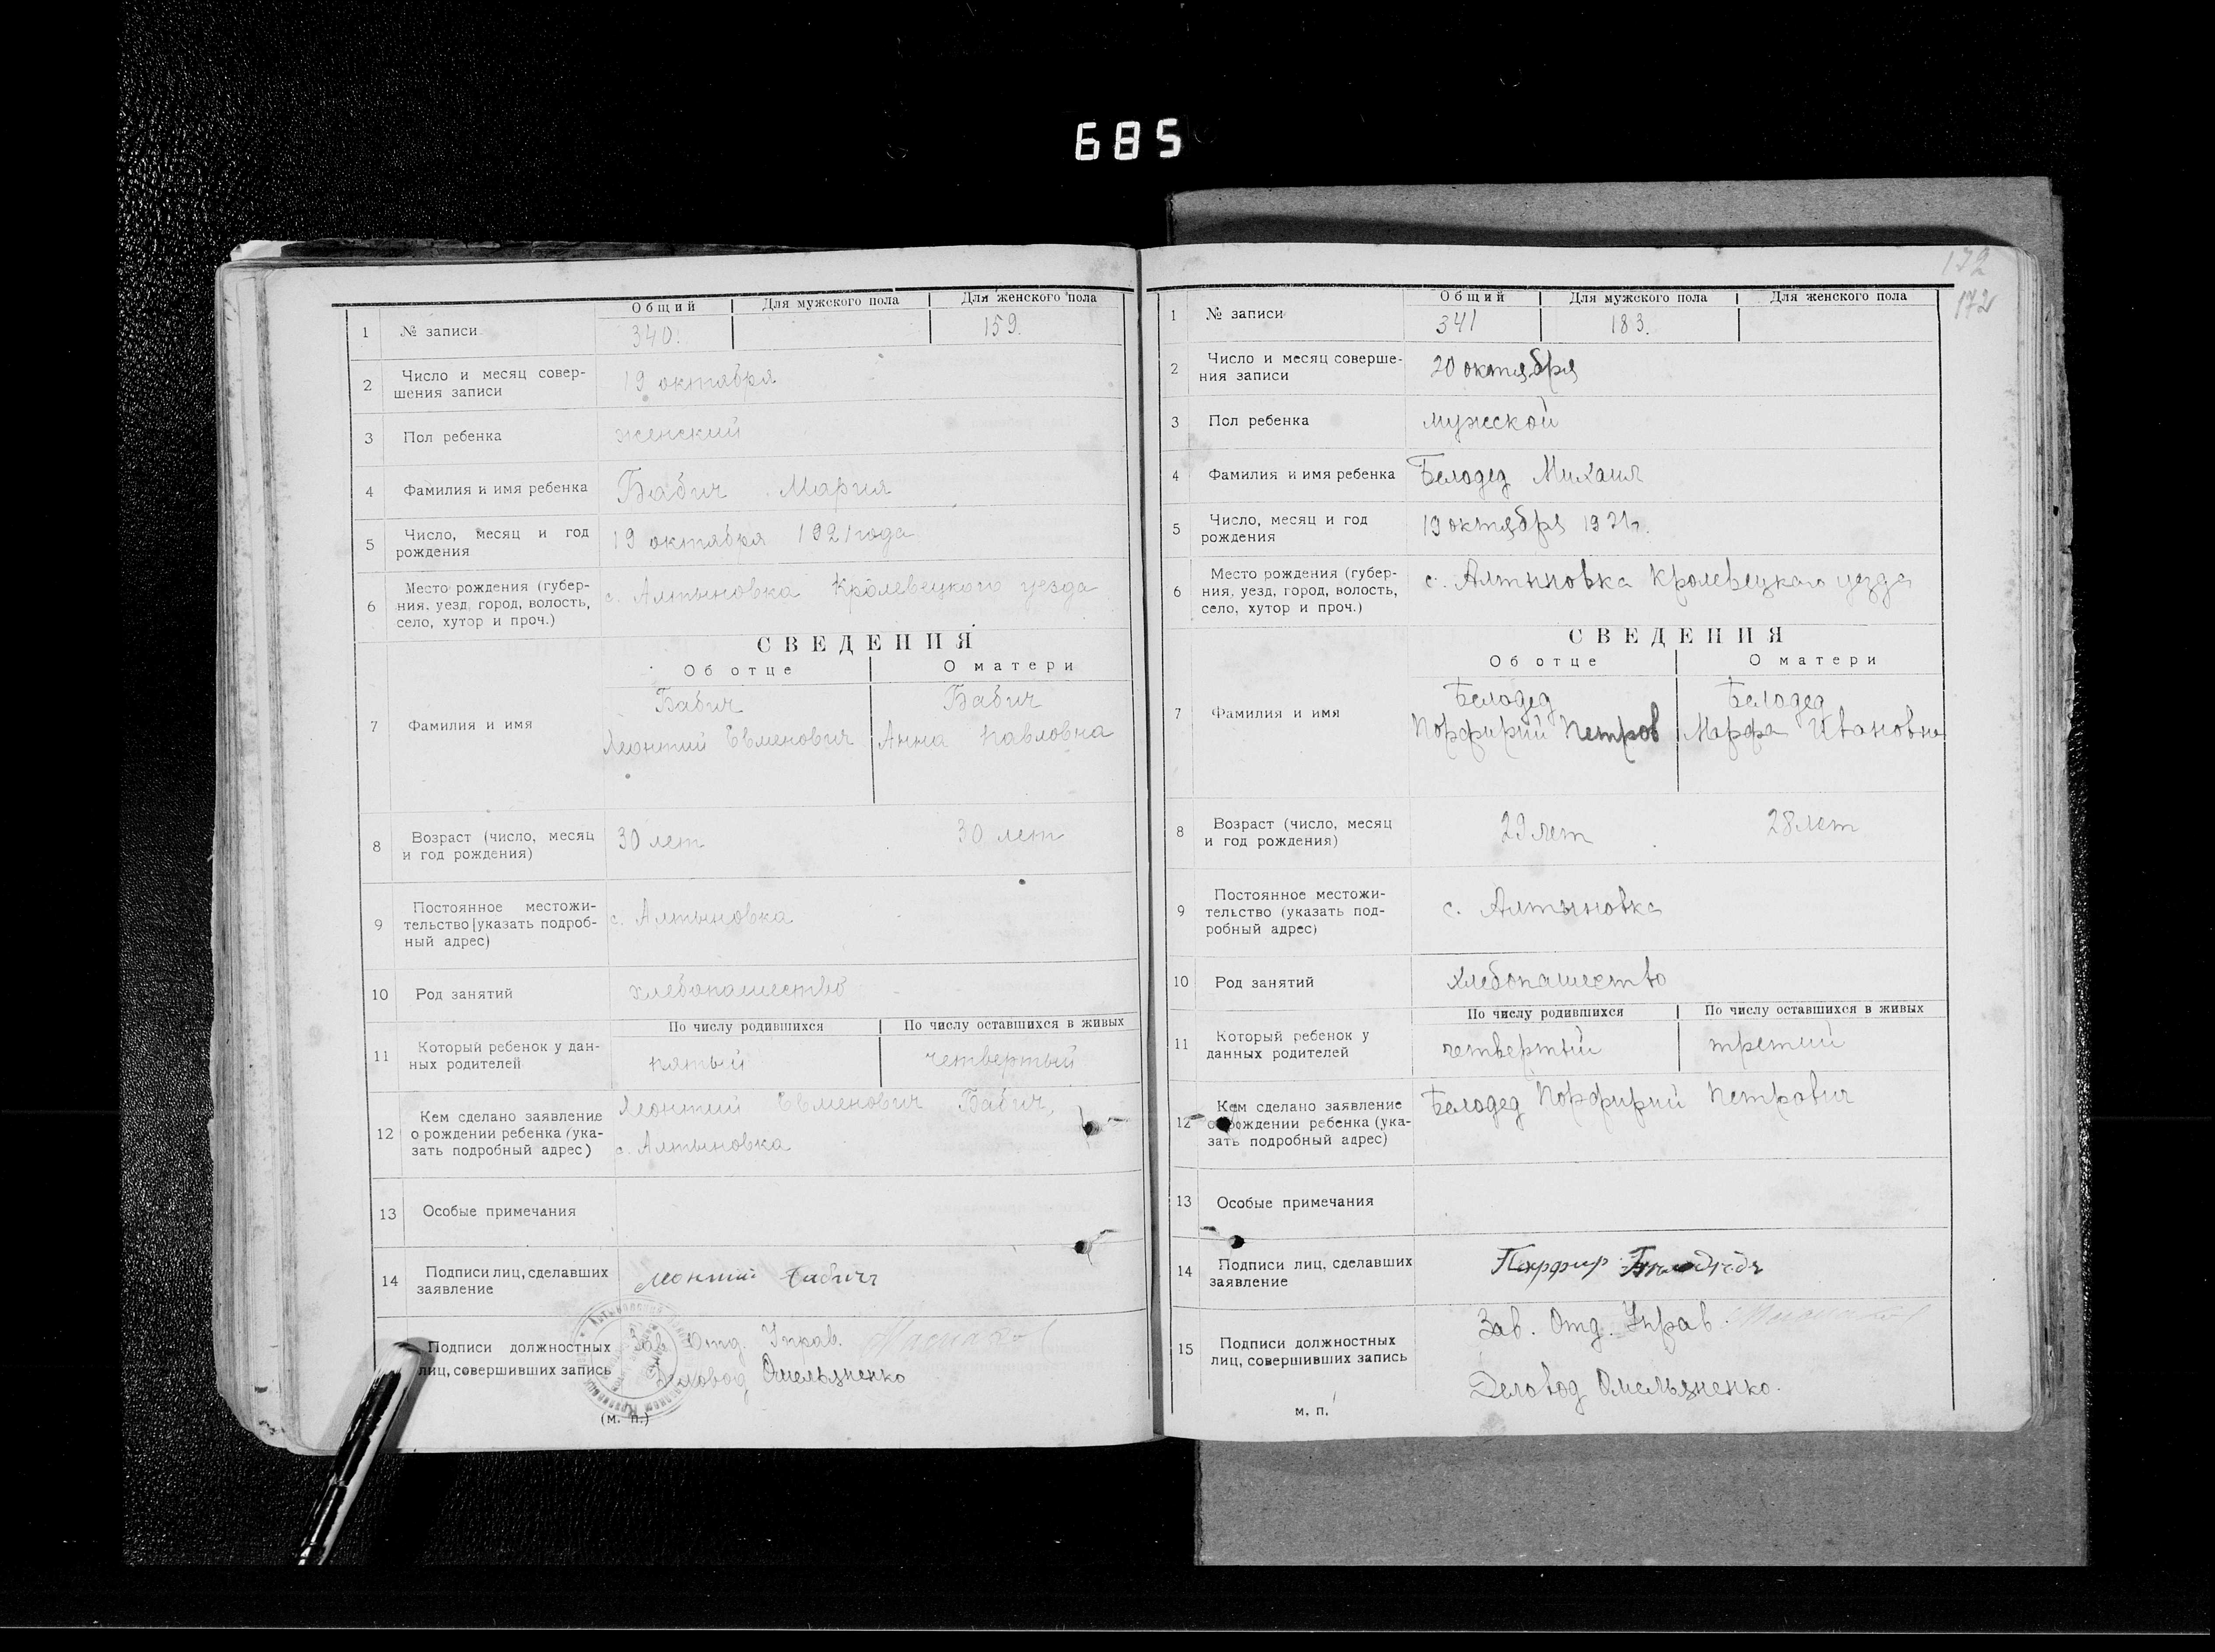 685
Общий Для мужского пола Для женского пола
1 № записи 340. 159.
2 Число и месяц совер-
шения записи 19 октября
3 Пол ребенка женский
4 Фамилия и имя ребенка Бабич Мария
5 Число, месяц и год
рождения 19 октября 1921 года
6 Место рождения (губер-
ния, уезд, город, волость,
село, хутор и проч.) с. Алтыновка Кролевецкого уезда
СВЕДЕНИЯ
Об отце О матери
7 Фамилия и имя Бабич Бабич
Леонтий Евменович Анна Павловна
8 Возраст (число, месяц
и год рождения) 30 лет 30 лет
9 Постоянное местожи-
тельство (указать подроб-
ный адрес) с. Алтыновка
10 Род занятий хлебопашество
По числу родившихся По числу оставшихся в живых
11 Который ребенок у дан-
ных родителей пятый четвертый
12 Кем сделано заявление
о рождении ребенка (ука-
зать подробный адрес) Леонтий Евменович Бабич,
с. Алтыновка
13 Особые примечания
14 Подписи лиц, сделавших
заявление Леонтий Бабич
15 Подписи должностных
лиц, совершивших запись Зав. Отд. Управ.
Деловод Омельяненко
(м. п.)
172
172
Общий Для мужского пола Для женского пола
1 № записи 341 183.
2 Число и месяц соверше-
ния записи 20 октября
3 Пол ребенка мужской
4 Фамилия и имя ребенка Белодед Михаил
5 Число, месяц и год
рождения 19 октября 1921 г.
6 Место рождения (губер-
ния, уезд, город, волость,
село, хутор и проч.) с. Алтыновка Кролевецкого уезда
СВЕДЕНИЯ
Об отце О матери
7 Фамилия и имя Белодед Белодед
Порфирий Петров Марфа Ивановна
8 Возраст (число, месяц
и год рождения) 29 лет 28 лет
9 Постоянное местожи-
тельство (указать под-
робный адрес) с. Алтыновка
10 Род занятий хлебопашество
По числу родившихся По числу оставшихся в живых
11 Который ребенок у
данных родителей четвертый третий
12 Кем сделано заявление
о рождении ребенка (ука-
зать подробный адрес) Белодед Порфирий Петрович
13 Особые примечания
14 Подписи лиц, сделавших
заявление
15 Подписи должностных
лиц, совершивших запись Зав. Отд. Управ.
Деловод Омельяненко.
м. п.